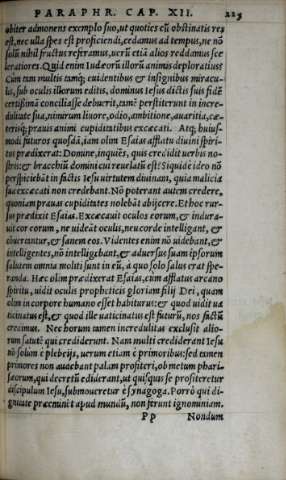 PARAPHR. CAP. XII. 223
obiter admonens exemplo suo, ut quoties cū obstinatis res
est, nec ulla spes est proficiendi, cedamus ad tempus, ne nō
solū nihil fructus referamus, uerū etiā alios reddamus sce
leratiores. Quid enim Iudæorū illorū animis deploratius?
Cum tam multis tamq́; euidentibus & insignibus miracu-
lis, sub oculis illorum editis, dominus Iesus dictis suis fidē
certißimā conciliasse debuerit, tamē perstiterunt in incre-
dulitate sua, nimirum liuore, odio, ambitione, auaritia, cæ-
terisq́; prauis animi cupiditatibus excæcati. Atq; huius-
modi futuros quosdā, iam olim Esaias afflatu diuini spiri-
tus prædixerat: Domine, inquiēs, quis credidit uerbis no-
stris: & bracchiū domini cui reuelatū est? Siquidē ideo nō
perspiciebāt in factis Iesu uirtutem diuinam, quia malicia
sua excæcati non credebant. Nō poterant autem credere,
quoniam prauas cupiditates nolebāt abijcere. Et hoc rur-
sus prædixit Esaias. Excæcauit oculos eorum, & indura-
uit cor eorum, ne uideāt oculis, neu corde intelligant, &
cōuertantur, & sanem eos. Videntes enim nō uidebant, &
intelligentes, nō intelligebant, & aduersus suam ipsorum
salutem omnia moliti sunt in eū, à quo solo salus erat spe-
randa. Hæc olim prædixerat Esaias, cum afflatus arcano
spiritu, uidit oculis propheticis gloriam filij Dei, quam
olim in corpore humano esset habiturus: & quod uidit ua
ticinatus est, & quod ille uaticinatus est futurū, nos factū
cernimus. Nec horum tamen incredulitas exclusit alio-
rum salutē qui crediderunt. Nam multi crediderunt Iesu
nō solum è plebeijs, uerum etiam è primoribus: sed tamen
primores non audebant palam profiteri, ob metum phari-
sæorum, qui decretū ediderant, ut quisquis se profiteretur
discipulum Iesu, submoueretur è synagoga. Porrò qui di-
gnitate præminēt apud mundū, non ferunt ignominiam.
Pp Nondum